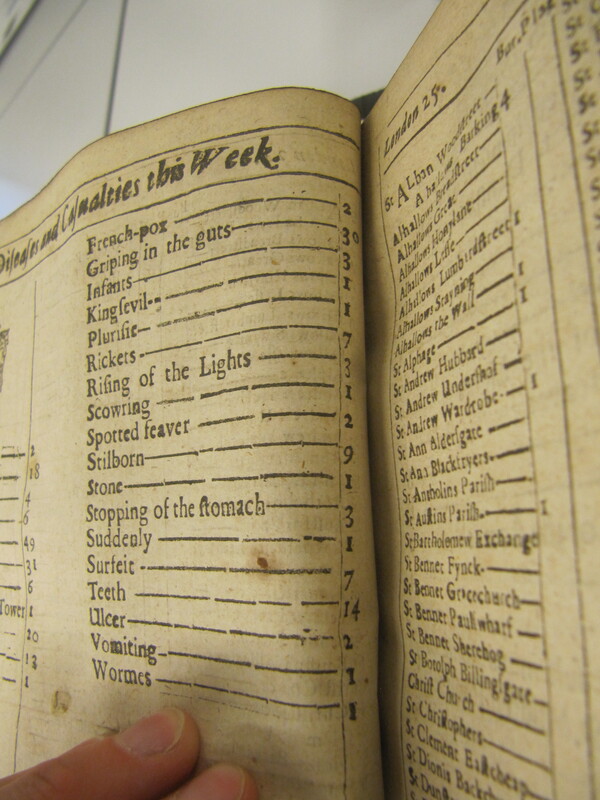 Diſeaſes and Caſualties this Week.
2
18
4
6
49
31
6
Tower 1
20
13
1
French-pox 2
Griping in the guts 30
Infants 3
Kingſevil 1
Pluriſie 1
Rickets 7
Riſing of the Lights 3
Scowring 1
Spotted feaver 2
Stilborn 9
Stone 1
Stopping of the ſtomach 3
Suddenly 1
Surfeit 7
Teeth 14
Ulcer 2
Vomiting 1
Wormes 1
London 25. Bur. Pla
St Alban Woodſtreet
Alhallows Barking 4
Alhallows Breadſtreet
Alhallows Great
Alhallows Honylane
Alhallows Leſſe
Alhallows Lumbardſtreet 1
Alhallows Stayning 1
Alhallows the Wall 1
St Alphage
St Andrew Hubbard
St Andrew Underſhaf
St Andrew Wardrobe 1
St Ann Alderſgate
St Ann Blackfryers
St Antholins Pariſh
St Auſtins Pariſh 1
St Bartholomew Exchange
St Bennet Fynck
St Bennet Gracechurch
St Bennet Paulſwharf
St Bennet Sherehog
St Botolph Billingſgate
Chriſt Church
St Chriſtophers
St Clement Eaſtcheap
St Dionis Backch
St Dunſt